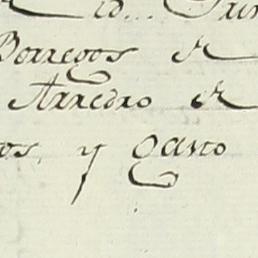 Borregos de
Arredro de
os, y Gasto